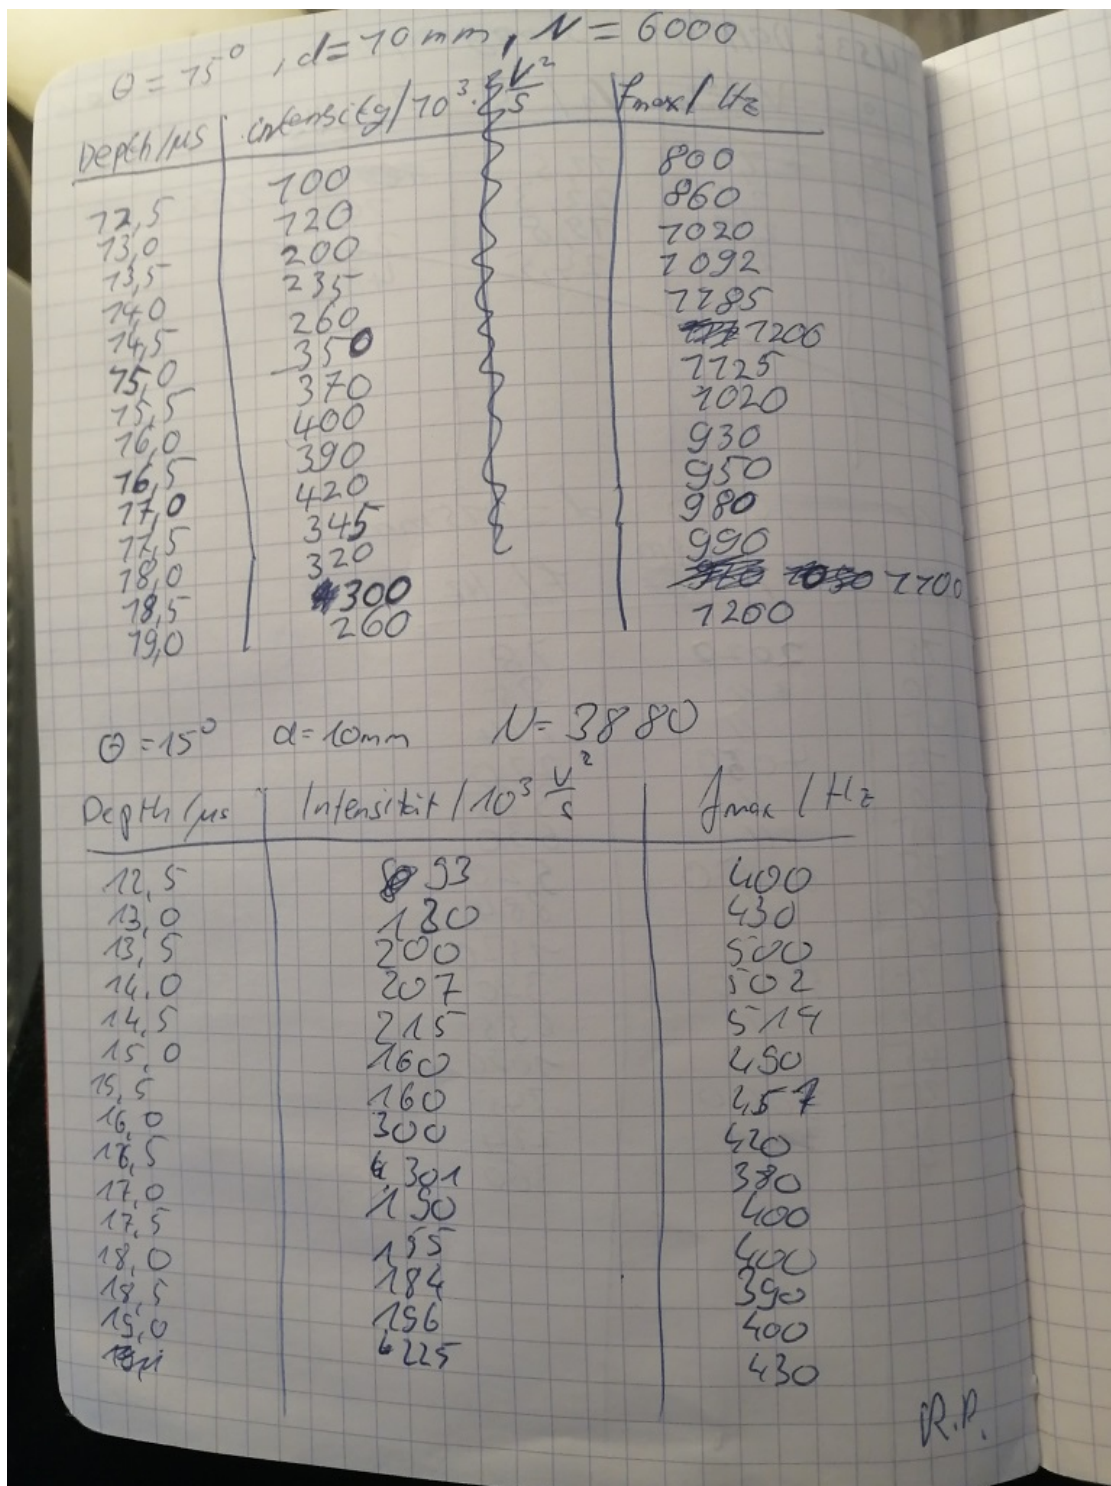 Θ = 15° , d = 10 mm , N = 6000
Depth/µs intensity/10³ · V²/s fmax / Hz
12,5 100 800
13,0 120 860
13,5 200 1020
14,0 235 1092
14,5 260 1185
15,0 350 1200
15,5 370 1125
16,0 400 1020
16,5 390 930
17,0 420 950
17,5 345 980
18,0 320 990
18,5 300 1100
19,0 260 1200
Θ = 15° d = 10mm N = 3880
Depth/µs Intensität / 10³ V²/s fmax / Hz
12,5 93 400
13,0 130 430
13,5 200 500
14,0 207 502
14,5 215 514
15,0 160 490
15,5 160 457
16,0 300 420
16,5 301 380
17,0 190 400
17,5 155 400
18,0 184 390
18,5 196 400
19,0 225 430
R.P.